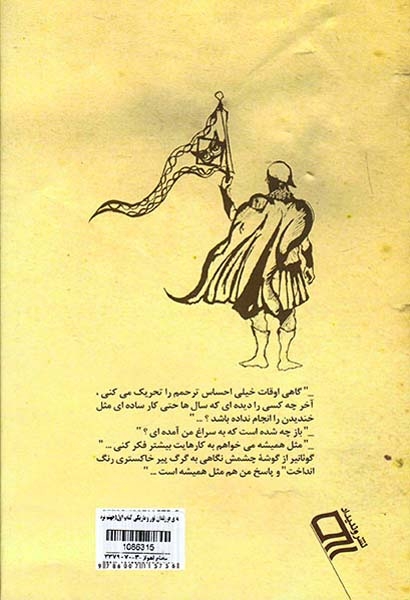 _" گاهی اوقات خیلی احساس ترحمم را تحریک می کنی ،
آخر چه کسی را دیده ای که سال ها حتی کار ساده ای مثل
خندیدن را انجام نداده باشد ؟ ... "
_" باز چه شده است که به سراغ من آمده ای ؟ "
_" مثل همیشه می خواهم به کارهایت بیشتر فکر کنی ... "
گوثانیر از گوشهٔ چشمش نگاهی به گرگ پیر خاکستری رنگ
انداخت" و پاسخ من هم مثل همیشه است ... "
نشر وندیداد
1086315